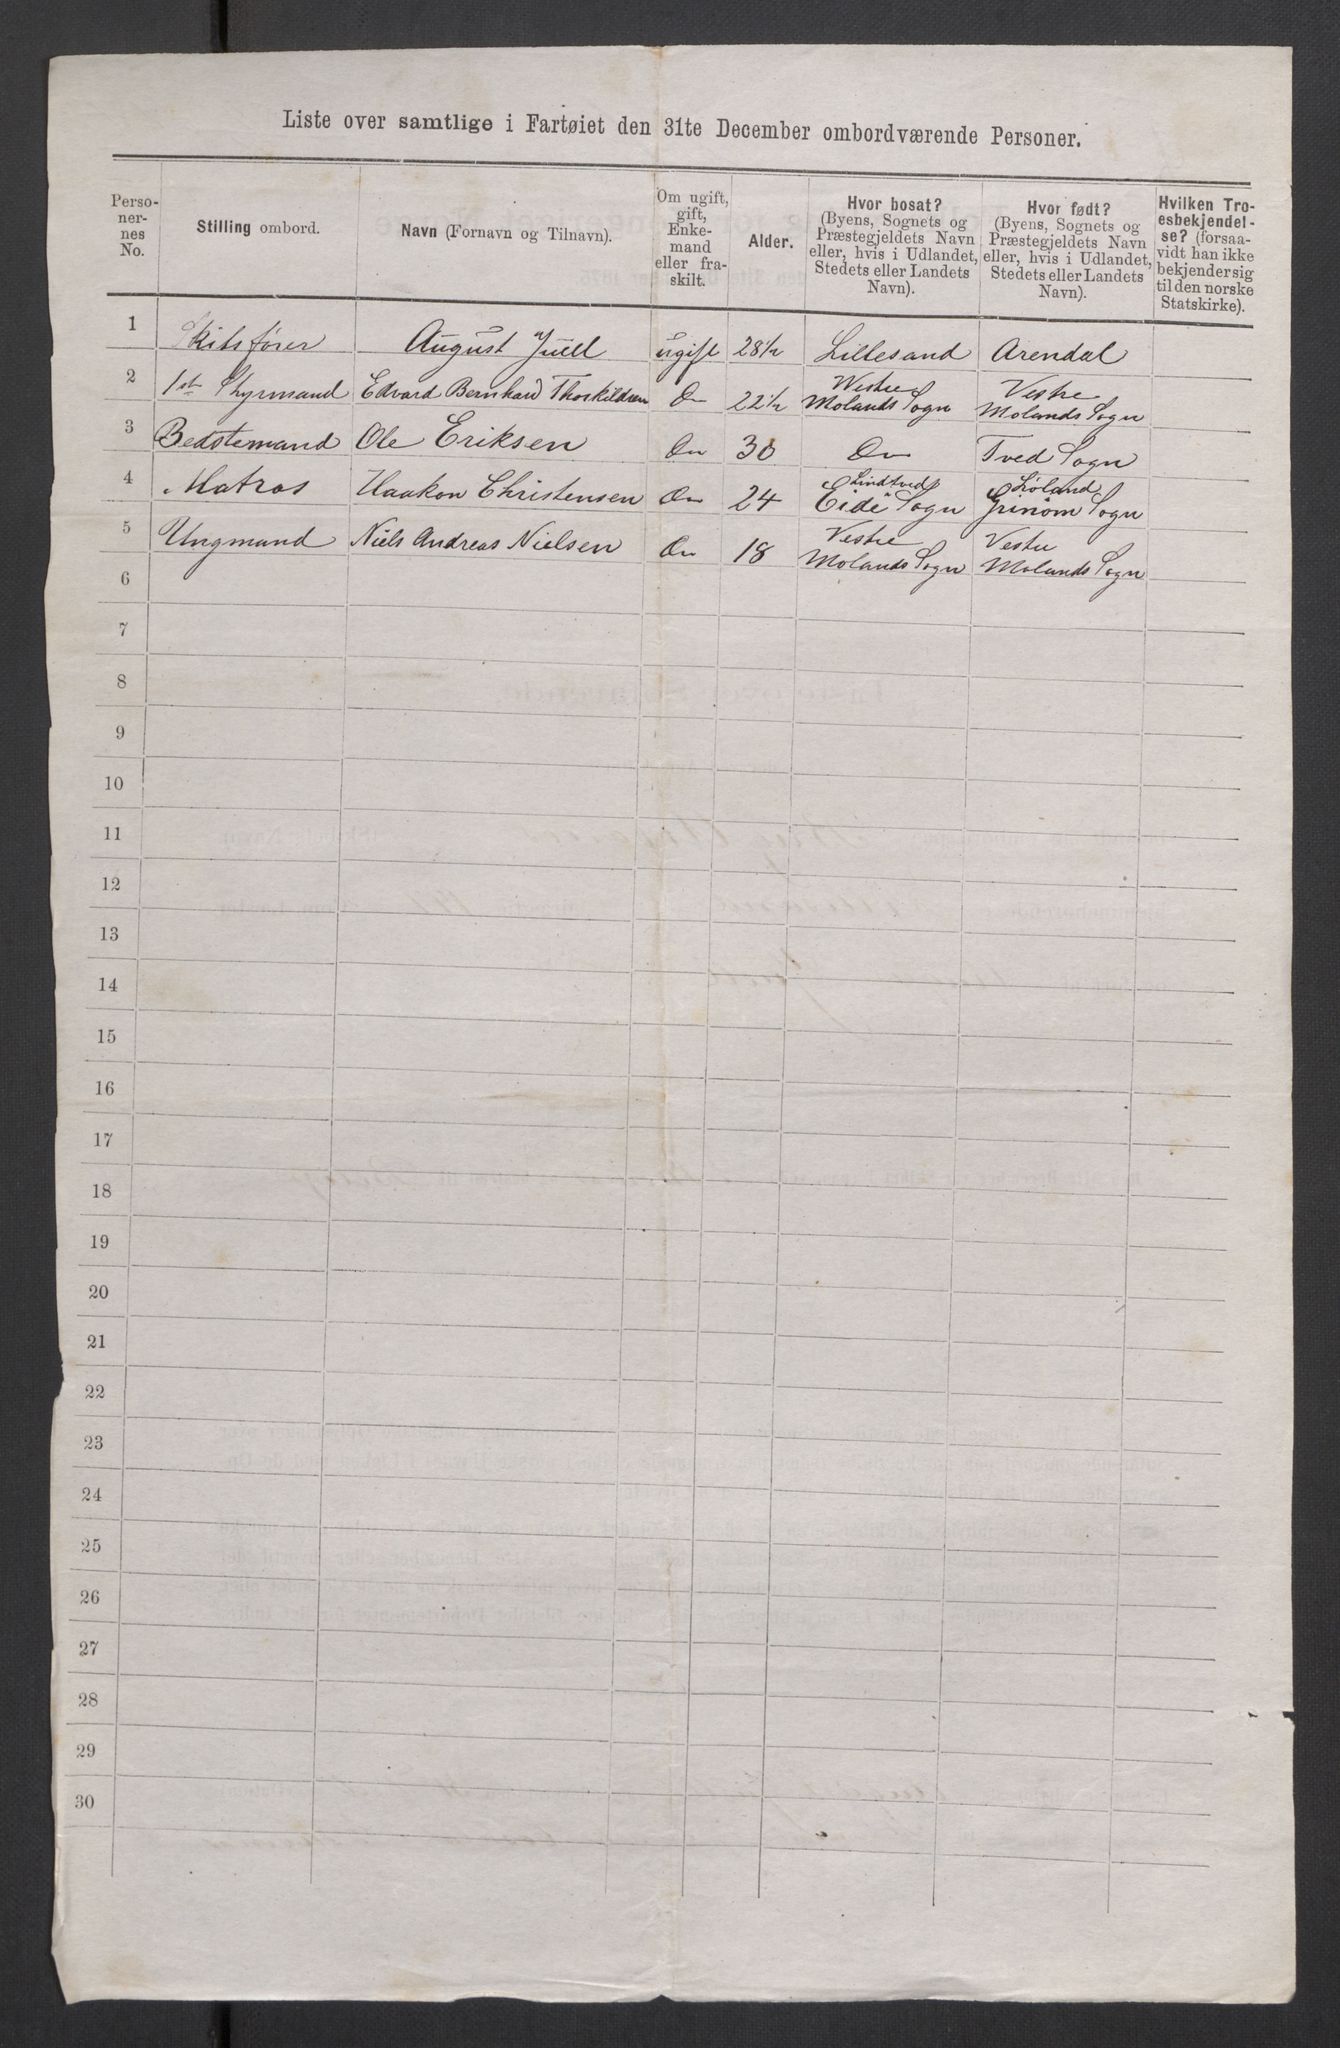 Liste over samtlige i Fartøiet den 31te December ombordværende Personer.
Perso-
ner-
nes
No.
Stilling ombord.
Navn (Fornavn og Tilnavn).
Om ugift,
gift,
Enke-
mand
eller fra-
skilt.
Alder.
Hvor bosat?
(Byens, Sognets og
Præstegjeldets Navn
eller, hvis i Udlandet,
Stedets eller Landets
Navn).
Hvor født?
(Byens, Sognets og
Præstegjeldets Navn
eller, hvis i Udlandet,
Stedets eller Landets
Navn).
Hvilken Tro-
esbekjendel-
se? (forsaa-
vidt han ikke
bekjender sig
til den norske
Statskirke).
1 Skibsfører August Juell ugift 28½ Lillesand Arendal
2 1st Styrmand Edvard Bernhard Thorkildsen Do 22½ Vestre Molands Sogn Vestre Molands Sogn
3 Bedstemand Ole Eriksen Do 30 Do Tved Sogn
4 Matros Haakon Christensen Do 24 Eide Sogn Sogn
5 Ungmand Niels Andreas Nielsen Do 18 Vestre Molands Sogn Vestre Molands Sogn
6
7
8
9
10
11
12
13
14
15
16
17
18
19
20
21
22
23
24
25
26
27
28
29
30